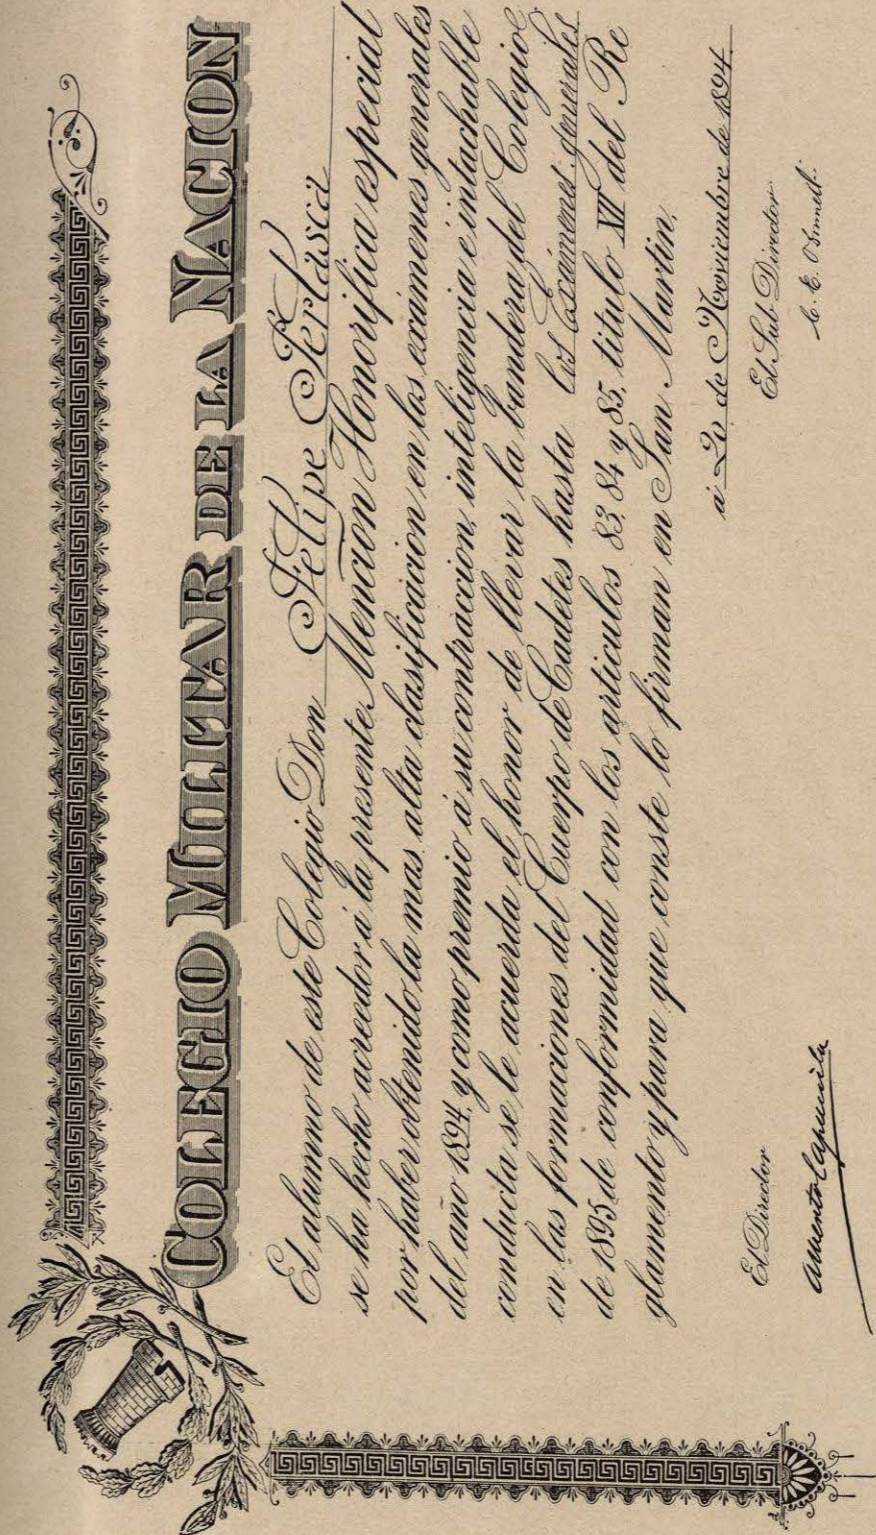 COLEGIO MILITAR DE LA NACION
El alumno de este Colegio Don Felipe Perlasca
se ha hecho acreedor á la presente Mencion Honorifica especial
por haber obtenido la mas alta clasificacion en los exámenes generales
del año 1894, y como premio á su contraccion, inteligencia é intachable
conducta se le acuerda el honor de llevar la bandera del Colegio
en las formaciones del Cuerpo de Cadetes hasta los Exámenes generales
de 1895 de conformidad con los articulos 83, 84 y 85, titulo XII del Re
glamento y para que conste lo firman en San Martin,
á 20 de Noviembre de 1894.
El Director
El Sub Director